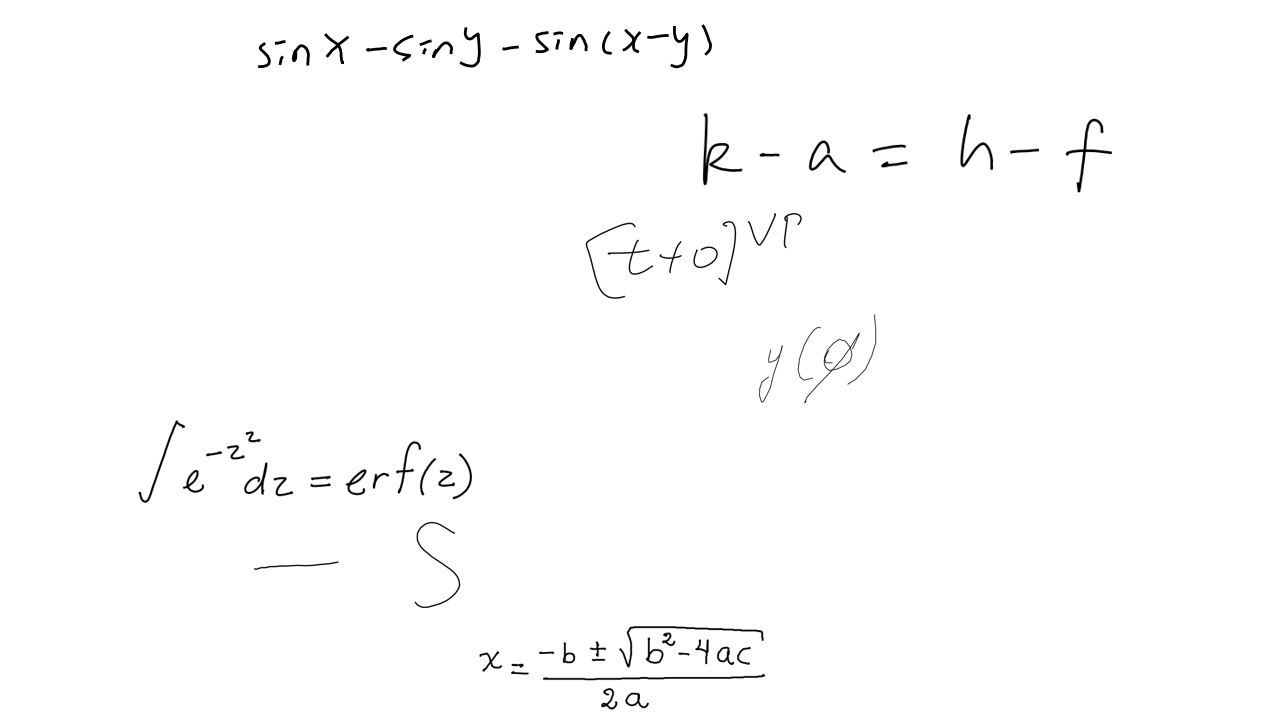 sin x - sin y - sin(x-y)
k - a = h - f
[t+0]^{VP}
y(ø)
∫ e^{-z^2} dz = erf(z)
— S
x = \frac{-b ± \sqrt{b^2 - 4ac}}{2a}